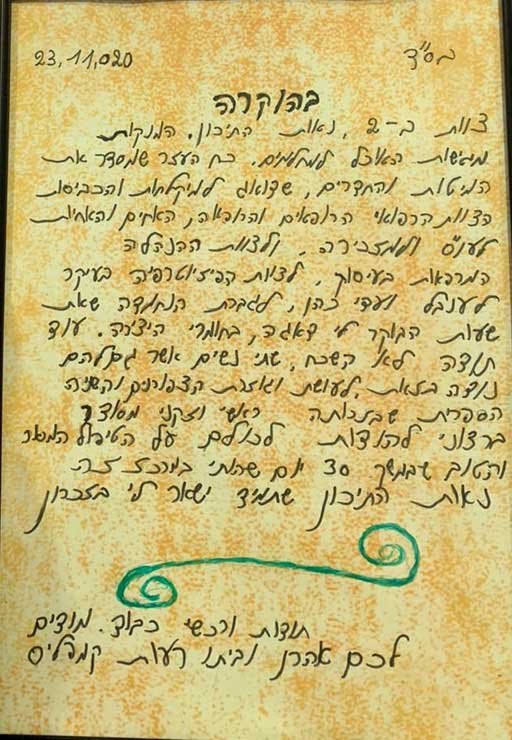 בס"ד 23,11,020
בהוקרה
צוות ב-2, נאות התיכון. המנקות
מגישות האוכל למחלמים. כח העזר שמסדר את
המיטות והחדרים, שדואג למיקלחות והכביסות
הצוות הרפואי הרופאים והרופאה, האחים והאחיות
לעו"ס ולמזכירה. ולצוות ההנהלה
המרפאות בעיסוק, לצוות הפיזיוטרפיה בעיקר
לענבל ועדי כהן, לגברת הנחמדה שאת
שעות הבוקר לי דאגה, בחומרי היצירה. עוד
תודה לא נשכח, שתי נשים אשר גם להם
נודה בזאת, לעושת וגוזרת הצפורנים והשניה
הספרית שבזכותה ראשי וזקני מסודר
ברצוני להודות לכולם על הטיפול המסור
והטוב שבמשך 30 יום שהותי במרכז זה
נאות התיכון שתמיד ישאר לי בזכרון
תודות ורכשי כבוד. מודים
לכם אהרן וביתו רעות קמפליס